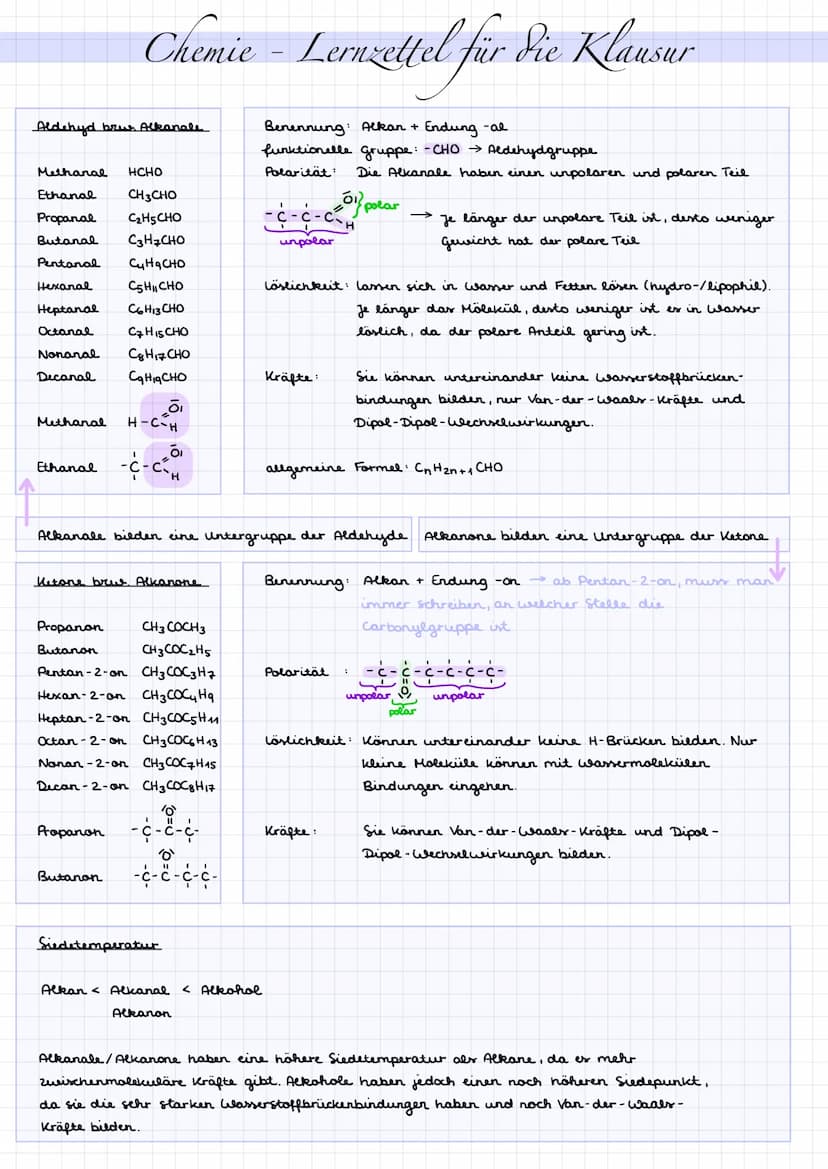 Chemie - Lernzettel für die Klausur
Aldehyd bzw. Alkanale
Methanal HCHO
Ethanal CH3CHO
Propanal C2H5CHO
Butanal C3H7CHO
Pentanal C4H9CHO
Hexanal C5H11CHO
Heptanal C6H13CHO
Octanal C7H15CHO
Nonanal C8H17CHO
Decanal C9H19CHO
Methanal H-C=O H
Ethanal -C-C=O H
Benennung: Alkan + Endung -al
funktionelle Gruppe: -CHO → Aldehydgruppe
Polarität: Die Alkanale haben einen unpolaren und polaren Teil
-C-C-C=O H } polar
unpolar
→ Je länger der unpolare Teil ist, desto weniger
Gewicht hat der polare Teil
Löslichkeit: lassen sich in Wasser und Fetten lösen (hydro-/lipophil).
Je länger das Molekül, desto weniger ist es in Wasser
löslich, da der polare Anteil gering ist.
Kräfte: Sie können untereinander keine Wasserstoffbrücken-
bindungen bilden, nur Van-der-Waals-Kräfte und
Dipol-Dipol-Wechselwirkungen.
allgemeine Formel: CnH2n+1CHO
Alkanale bilden eine Untergruppe der Aldehyde
Alkanone bilden eine Untergruppe der Ketone
Ketone bzw. Alkanone
Propanon CH3COCH3
Butanon CH3COC2H5
Pentan-2-on CH3COC3H7
Hexan-2-on CH3COC4H9
Heptan-2-on CH3COC5H11
Octan-2-on CH3COC6H13
Nonan-2-on CH3COC7H15
Decan-2-on CH3COC8H17
O
Propanon -C-C-C-
O
Butanon -C-C-C-C-
Benennung: Alkan + Endung -on → ab Pentan-2-on, muss man
immer schreiben, an welcher Stelle die
Carbonylgruppe ist
Polarität : -C-C-C-C-C-C-
unpolar O unpolar
polar
Löslichkeit: Können untereinander keine H-Brücken bilden. Nur
kleine Moleküle können mit Wassermolekülen
Bindungen eingehen.
Kräfte: Sie können Van-der-Waals-Kräfte und Dipol-
Dipol-Wechselwirkungen bilden.
Siedetemperatur
Alkan < Alkanal < Alkohol
Alkanon
Alkanale/Alkanone haben eine höhere Siedetemperatur als Alkane, da es mehr
zwischenmolekuläre Kräfte gibt. Alkohole haben jedoch einen noch höheren Siedepunkt,
da sie die sehr starken Wasserstoffbrückenbindungen haben und noch Van-der-Waals-
Kräfte bilden.